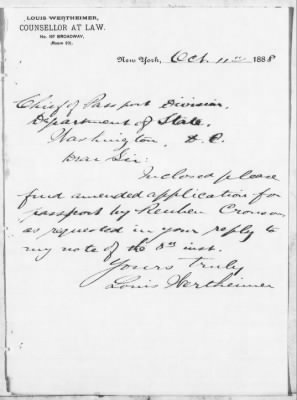 LOUIS WERTHEIMER,
COUNSELLOR AT LAW.
No. 187 BROADWAY,
(Room 23).
New York, Oct. 11th 1888
Chief of Passport Division,
Department of State,
Washington, D.C.
Dear Sir:
Inclosed please
find amended application for
passport by Reuben Cronson
as requested in your reply to
my note of the 8th inst.
Yours Truly
Louis Wertheimer